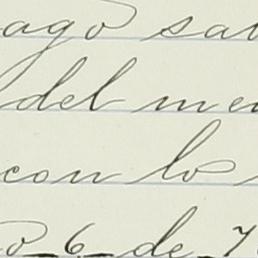 ago sal
del me
con lo
o 6 de 7